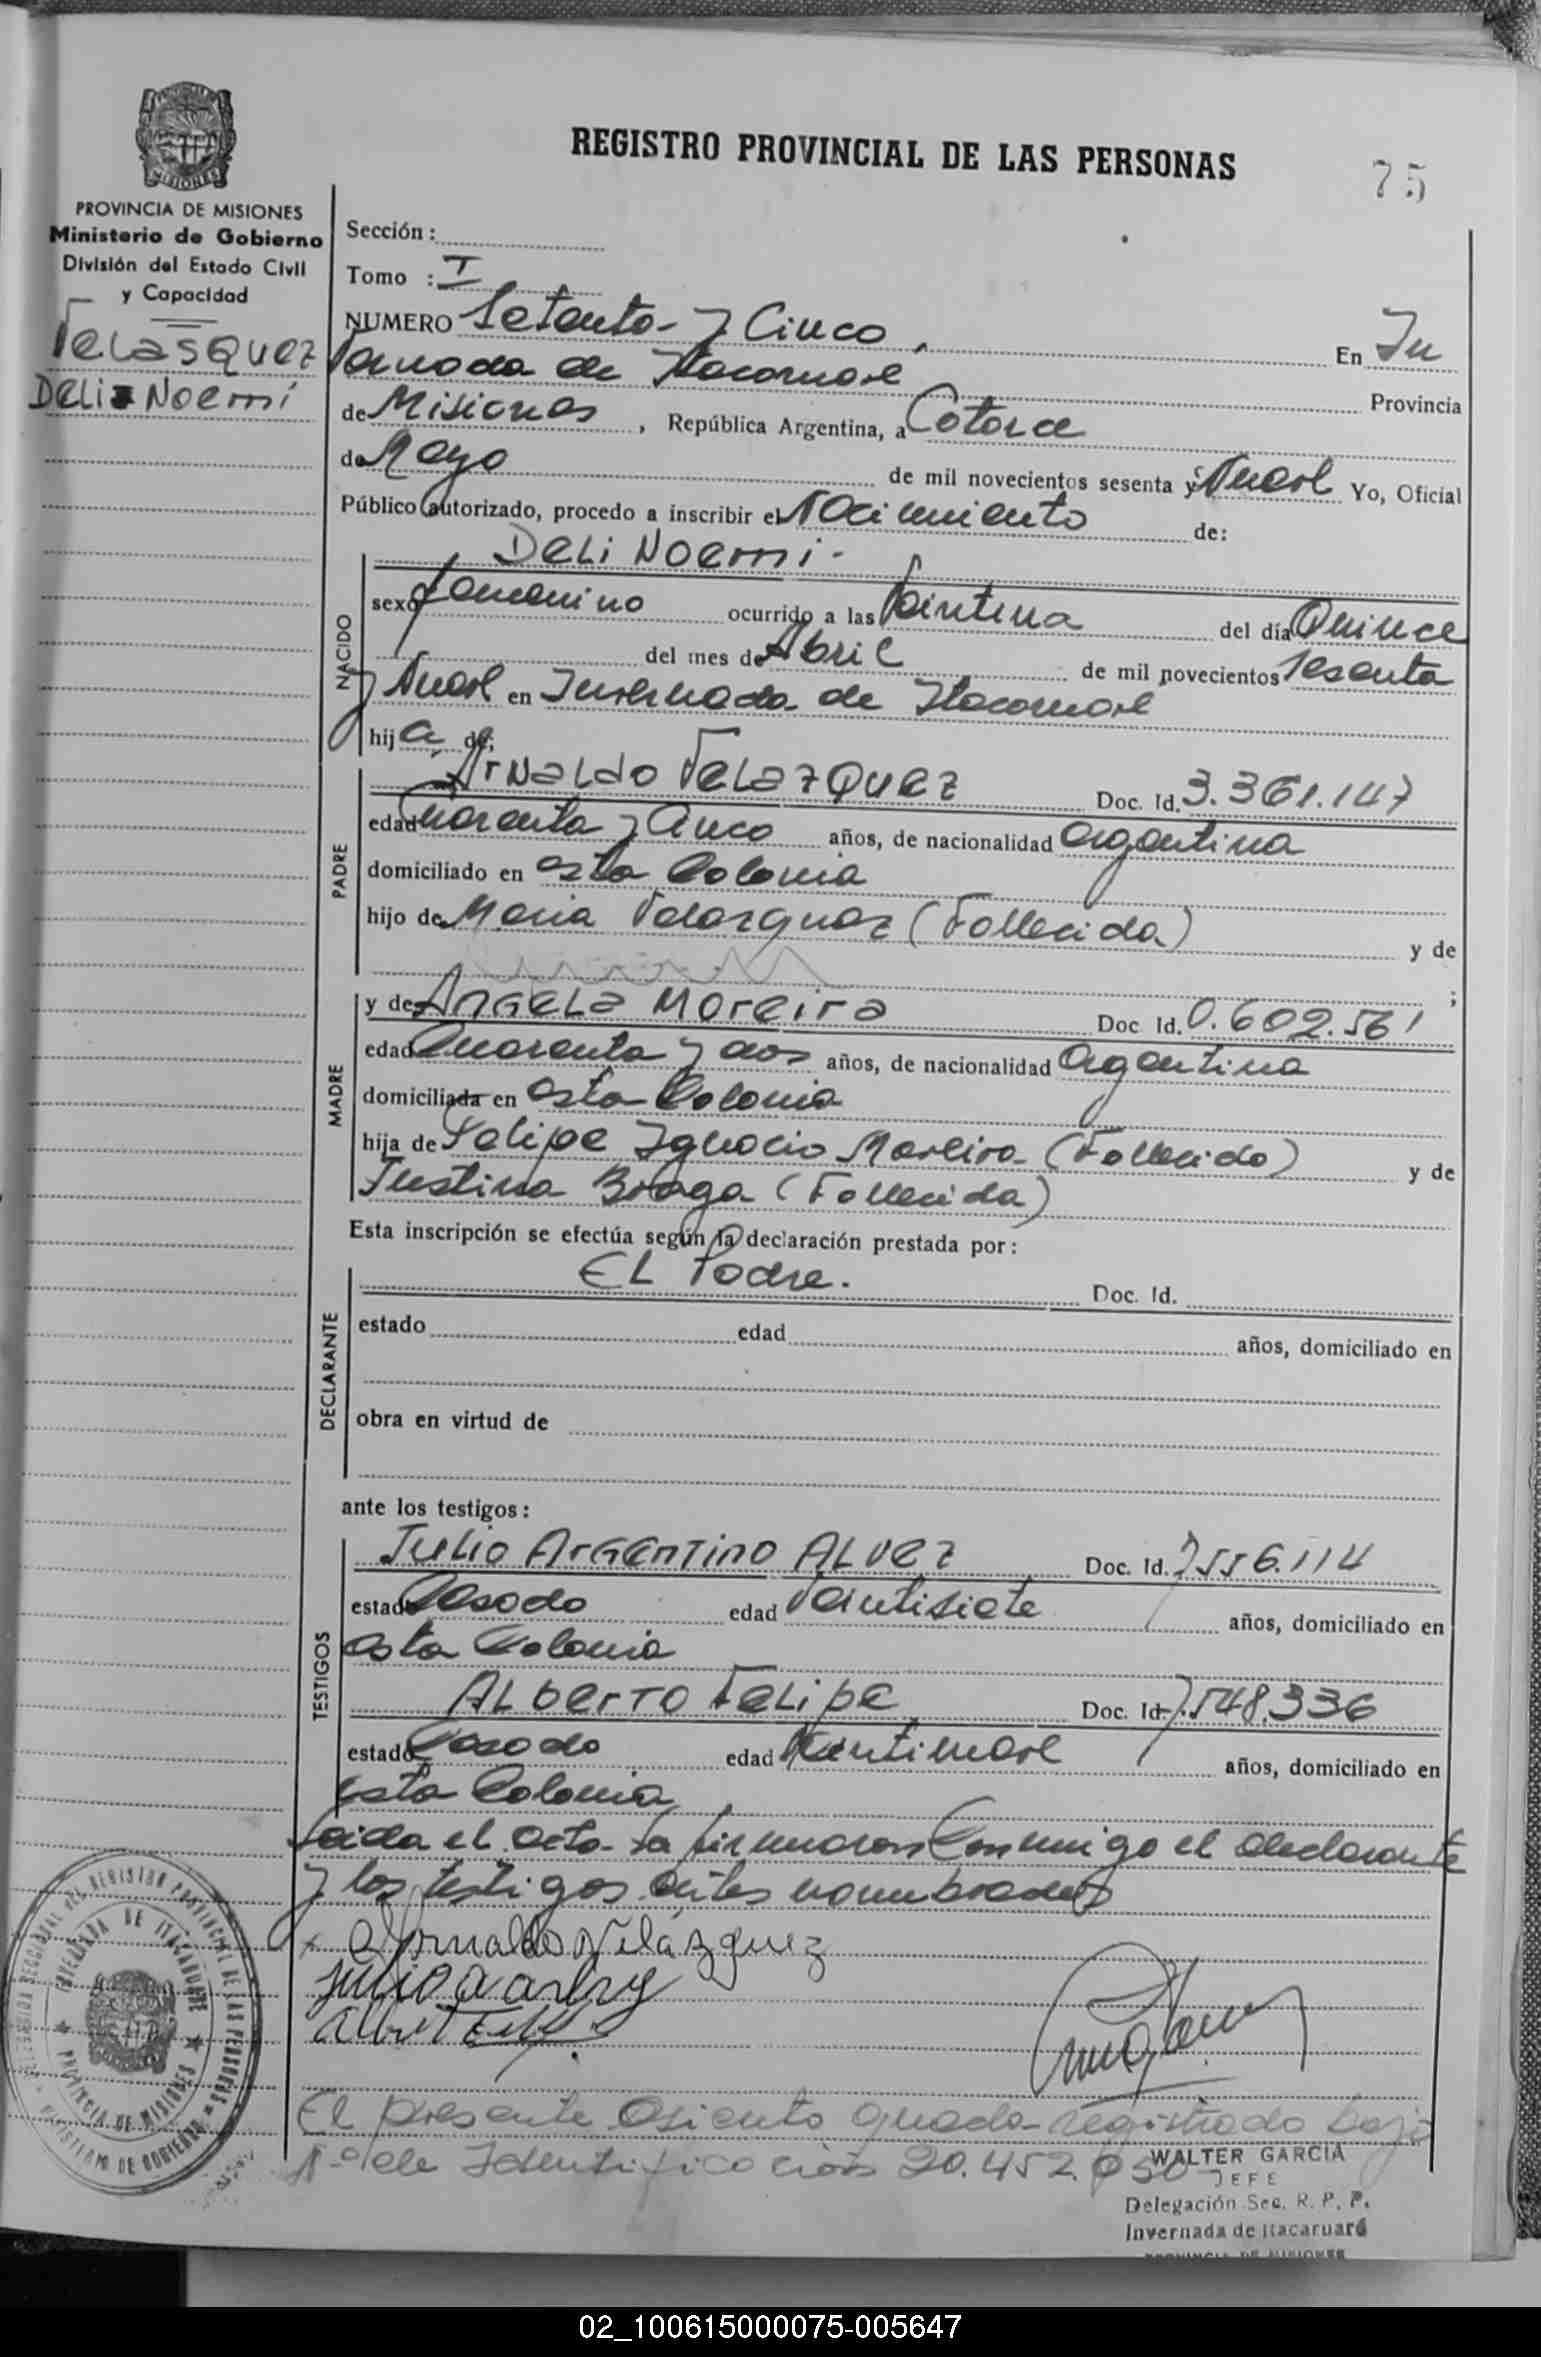 REGISTRO PROVINCIAL DE LAS PERSONAS
75
MISIONES
PROVINCIA DE MISIONES
Ministerio de Gobierno
División del Estado Civil
y Capacidad
Velasquez
Deli Noemí
Sección :
Tomo : I
NUMERO Setenta y Cinco, En In
vernada de Itacaruare Provincia
de Misiones, República Argentina, a Catorce
de Mayo de mil novecientos sesenta y Nueve Yo, Oficial
Público autorizado, procedo a inscribir el Nacimiento de:
Deli Noemi-
NACIDO
sexo femenino ocurrido a las veintiuna del día Quince
del mes de Abril de mil novecientos sesenta
y Nueve en Invernada de Itacaruare
hija de;
PADRE
Arnaldo Velazquez Doc. Id. 3.361.147
edad Cuarenta y Cinco años, de nacionalidad argentina
domiciliado en esta Colonia
hijo de Maria Velazquez (Fallecida) y de
;
MADRE
y de Angela Moreira Doc. Id. 0.602.561
edad Cuarenta y dos años, de nacionalidad argentina
domiciliada en esta Colonia
hija de Felipe Ignacio Moreira (Fallecido) y de
Justina Braga (Fallecida)
Esta inscripción se efectúa según la declaración prestada por:
DECLARANTE
EL Padre. Doc. Id.
estado edad años, domiciliado en
obra en virtud de
ante los testigos:
TESTIGOS
Julio Argentino Alvez Doc. Id. 7556.114
estado Casado edad Veintisiete años, domiciliado en
esta Colonia
Alberto Felipe Doc. Id. 7.548.336
estado Casado edad Veintinueve años, domiciliado en
esta Colonia
Leida el acta la firmaron Conmigo el declarante
y los testigos antes nombrados
Arnaldo Velázquez
El presente asiento queda registrado bajo
Nº de Identificacion 20.452.050
WALTER GARCIA
JEFE
Delegación Sec. R. P. P.
Invernada de Itacaruaré
PROVINCIA DE MISIONES
INVERNADA DE ITACARUARE
PROVINCIA DE MISIONES
02_100615000075-005647